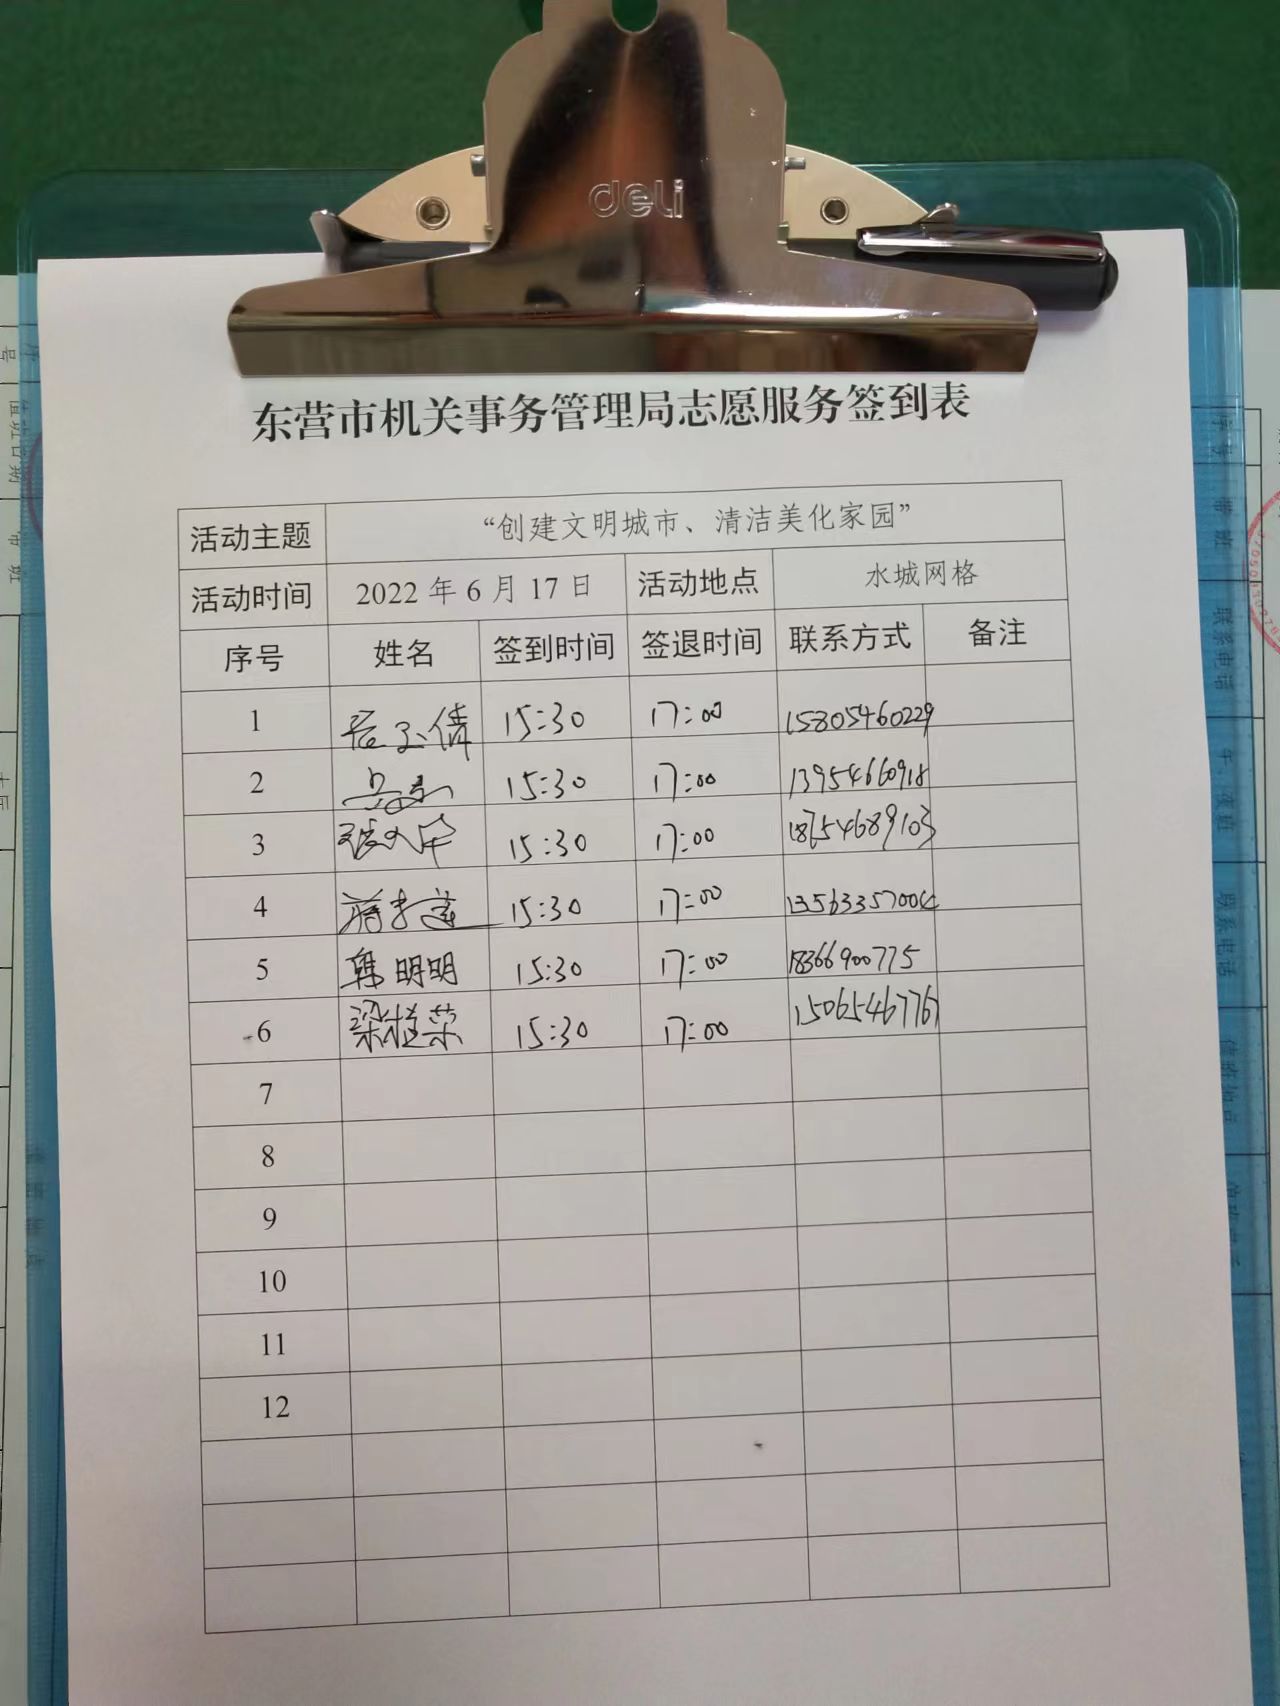 deli
东营市机关事务管理局志愿服务签到表
活动主题 “创建文明城市、清洁美化家园”
活动时间 2022年6月17日 活动地点 水城网格
序号 姓名 签到时间 签退时间 联系方式 备注
1 15:30 17:00 15805460229
2 15:30 17:00 13954660918
3 15:30 17:00 18754689103
4 15:30 17:00 13563357004
5 韩明明 15:30 17:00 18366900775
6 梁桂荣 15:30 17:00 15065467767
7
8
9
10
11
12